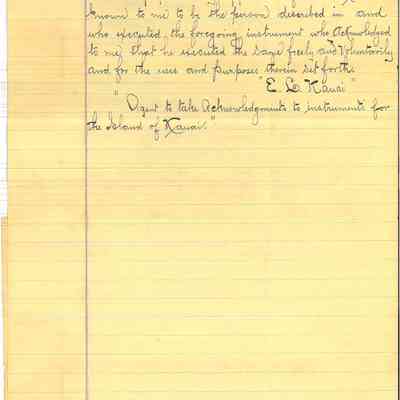 known to me to be the person described in and
who executed, the foregoing instrument who Acknowledged
to me, that he executed the same freely and Voluntarily
and for the uses and purposes therein set forth.
"E. L. Kauai"
"Agent to take Acknowledgments to instruments for
the Island of Kauai."